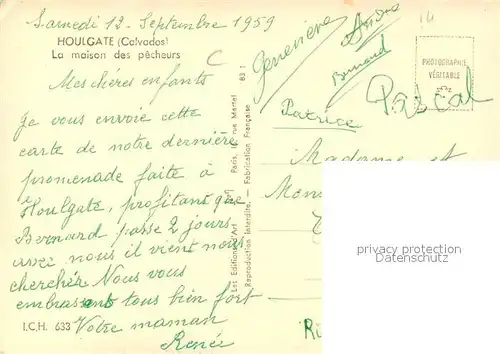 Samedi 12 Septembre 1959
HOULGATE (Calvados)
La maison des pêcheurs
Mes chéres enfants
Je vous envoie cette
carte de notre dernière
promenade faite à
Houlgate, profitant que
Bernard passe 2 jours
avec nous il vient nous
cherchér Nous vous
embrassent tous bien fort
I.C.H. 633
Votre maman
Renée
Les Editions d'Art
Paris, 17 rue Martel
83 1
Reproduction Interdite. - Fabrication Française
Geneviève
André
Bernard
Pascal
Patrice
14
PHOTOGRAPHIE
VÉRITABLE
Madame et
privacy protection